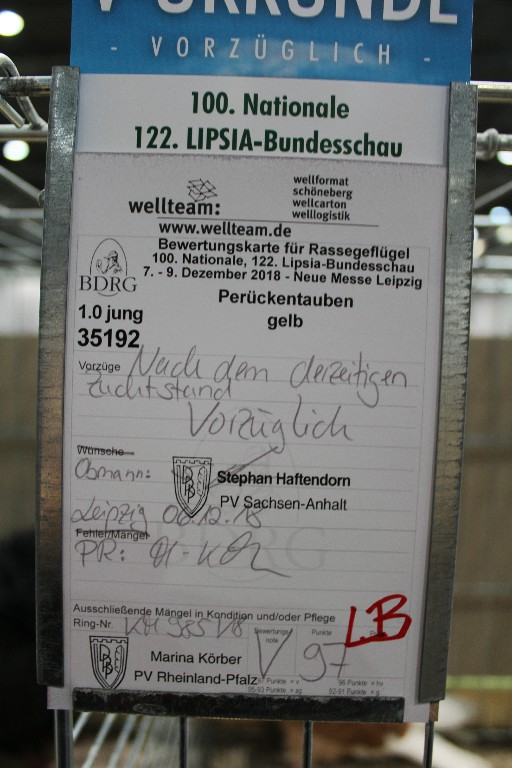 V-URKUNDE
- VORZÜGLICH -
100. Nationale
122. LIPSIA-Bundesschau
wellteam:
wellformat
schöneberg
wellcarton
welllogistik
www.wellteam.de
Bewertungskarte für Rassegeflügel
100. Nationale, 122. Lipsia-Bundesschau
7. - 9. Dezember 2018 - Neue Messe Leipzig
BDRG
1.0 jung
35192
Perückentauben
gelb
Vorzüge Nach dem derzeitigen
Zuchtstand
Vorzüglich
Wünsche
Obmann:
Stephan Haftendorn
PV Sachsen-Anhalt
Leipzig 06.12.18
Fehler/Mängel
PR:
Ausschließende Mängel in Kondition und/oder Pflege
Ring-Nr. 985
Bewertungs-
note
Punkte
V 97
LB
Marina Körber
PV Rheinland-Pfalz
97 Punkte = v
96 Punkte = hv
93-95 Punkte = sg
92-91 Punkte = g